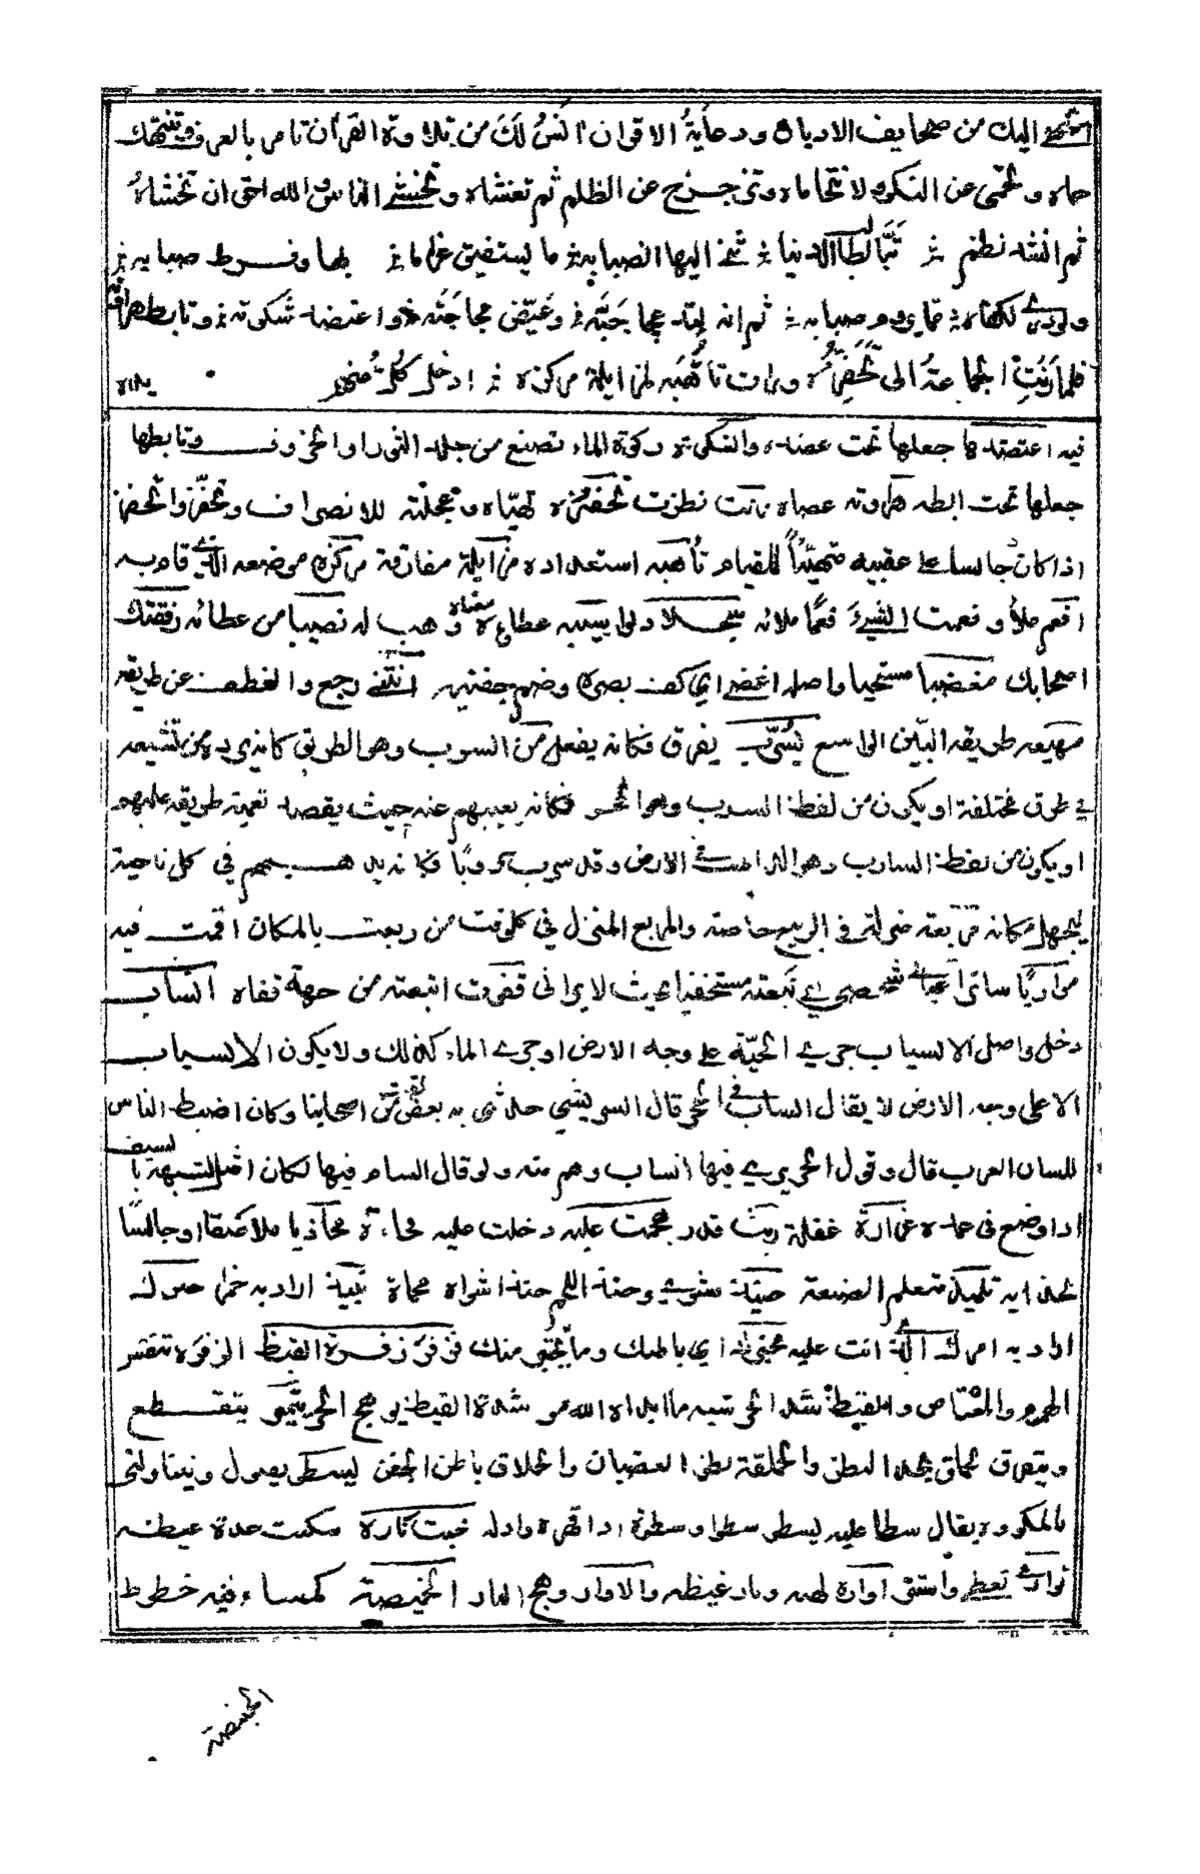 اشهى اليك من صحايف الاديان ودعابة الاقران انس لك من تلاوة القرآن تامر بالعرف وتنتهك
حماه وتحمى عن النكر ولا تتحاماه وتزحزح عن الظلم ثم تغشاه وتخشى الناس والله احق ان تخشاه
ثم انشد نظم تبا لطالب دنيا ثنى اليها انصبابه ما يستفيق غراما بها وفرط صبابه
ولو درى لكفاه مما يروم صبابه ثم انه لبد عجاجته وغيض مجاجته واعتضد شكوته وتابط هراوته
فلما رنت الجماعة الى تحفزه ورات تاهبه لمزايلة مركزه ادخل كل منهم يده
فيه اعتضدها جعلها تحت عضده والشكوة ركوة الماء تصنع من جلد وتابطها
جعلها تحت ابطه هراوته عصاه رنت نظرت تحفزه تهيأه وعجلته للانصراف وتحفز واتحفز
اذا كان جالسا على عقبيه متهيئا للقيام تأهبه استعداده مزايلة مفارقة مركزه موضعه الذي قام به
افعم ملأ وفعمت الشيء فعما ملأته سجلا دلوا سيبه عطاءه معناه وهب له نصيبا من عطائه رفقتك
اصحابك مغضيا مستحييا واصله اغضى اي كف بصره وضم جفنيه انثنى رجع وانعطف عن طريقه
مهيعه طريقه البين الواسع يسرب يفرق فكانه يفعل من السرب وهو الطريق كانه يرده من تشيعه
في طرق مختلفة او يكون من لفظ السرب وهو فكانه يغيبهم عنه حيث يقصد تعمية طريقه عليهم
او يكون من لفظ السارب وهو الذاهب في الارض وقد سرب سروبا فكانه يذهبهم في كل ناحية
ليجهل مكانه مربعه منزله في الربيع خاصة والمربع المنزل في كل وقت من ربعت بالمكان اقمت فيه
مواريا ساترا عياني شخصي اي تبعته مستخفيا بحيث لا يراني قفوت اتبعته من جهة قفاه انساب
دخل واصل الانسياب جري الحية على وجه الارض او جرى الماء كذلك ولا يكون الانسياب
الا على وجه الارض لا يقال انساب في الجحر قال السريشي حدثني به بعض من اصحابنا وكان اضبط الناس
للسان العرب قال وقول الحريري فيها انساب وهم منه ولو قال انسام فيها لكان
غرارة غفلة ريث قدر هجمت عليه دخلت عليه محاذيا ملاصقا او جالسا
بحذائه تلميذ متعلم الصنعة حنيذ مشوي وحنذ اللحم حنذا شواه نبيذ اراد به خمرا خبرك
اراد به امرك الذي انت عليه مخبرك اي باطنك وما يختفى منك فزفر زفرة القيظ الزفرة تنفس
المهموم والمغتاظ والقيظ شدة الحر شبه ما ابداه الله من شدة القيظ بوهج الحر يتميز يتقطع
ويتفرق يحملق يحد النظر والحملقة نظر الغضبان والحملاق باطن الجفن يسطو يصول ويتناولني
بالمكروه يقال سطا عليه يسطو سطوا وسطوة اذا قهره واذله خبت ناره سكنت حدة غيظه
توارى تغطى واستتر اواره لهبه ونار غيظه والاوار وهج النار الخميصة كساء فيه خطوط
الخميصة